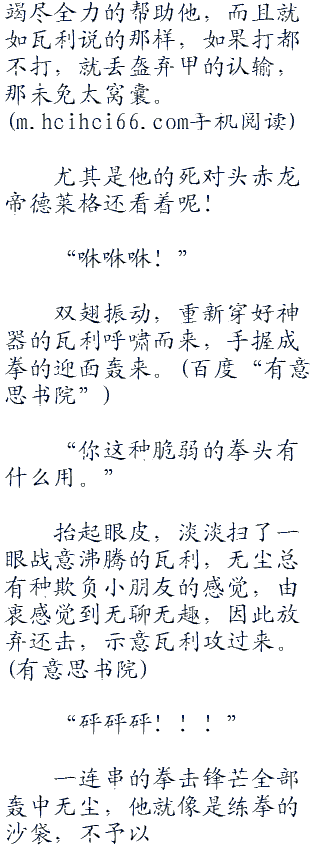 竭尽全力的帮助他，而且就
如瓦利说的那样，如果打都
不打，就丢盔弃甲的认输，
那未免太窝囊。
(m.hcihci66.com手机阅读)
尤其是他的死对头赤龙
帝德莱格还看着呢！
“咻咻咻！”
双翅振动，重新穿好神
器的瓦利呼啸而来，手握成
拳的迎面轰来。(百度“有意
思书院”)
“你这种脆弱的拳头有
什么用。”
抬起眼皮，淡淡扫了一
眼战意沸腾的瓦利，无尘总
有种欺负小朋友的感觉，由
衷感觉到无聊无趣，因此放
弃还击，示意瓦利攻过来。
(有意思书院)
“砰砰砰！！！”
一连串的拳击锋芒全部
轰中无尘，他就像是练拳的
沙袋，不予以